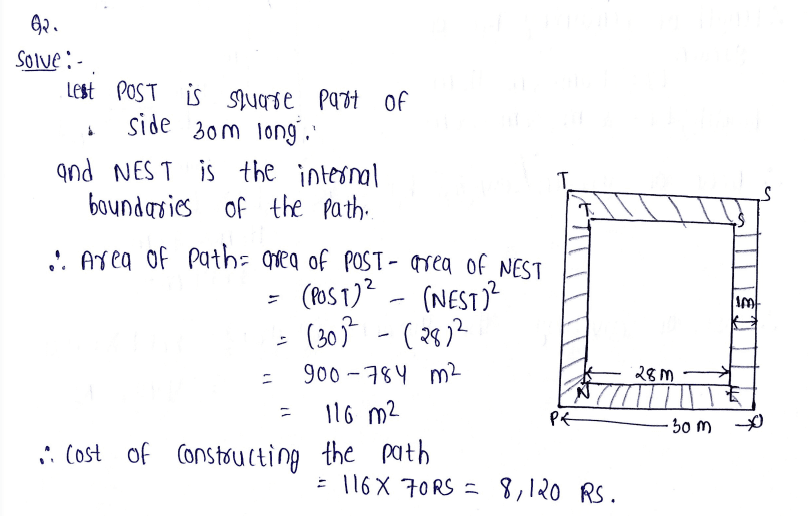 Q2.
Solve:-
Lest POST is square part of
side 30m long.
and NEST is the internal
boundaries of the path.
∴ Area of path= area of POST- area of NEST
= (POST)² - (NEST)²
= (30)² - (28)²
= 900-784 m²
= 116 m²
∴ Cost of constructing the path
= 116 X 70RS = 8,120 RS.
T S
T S
1m
28m
N E
P 30 m O